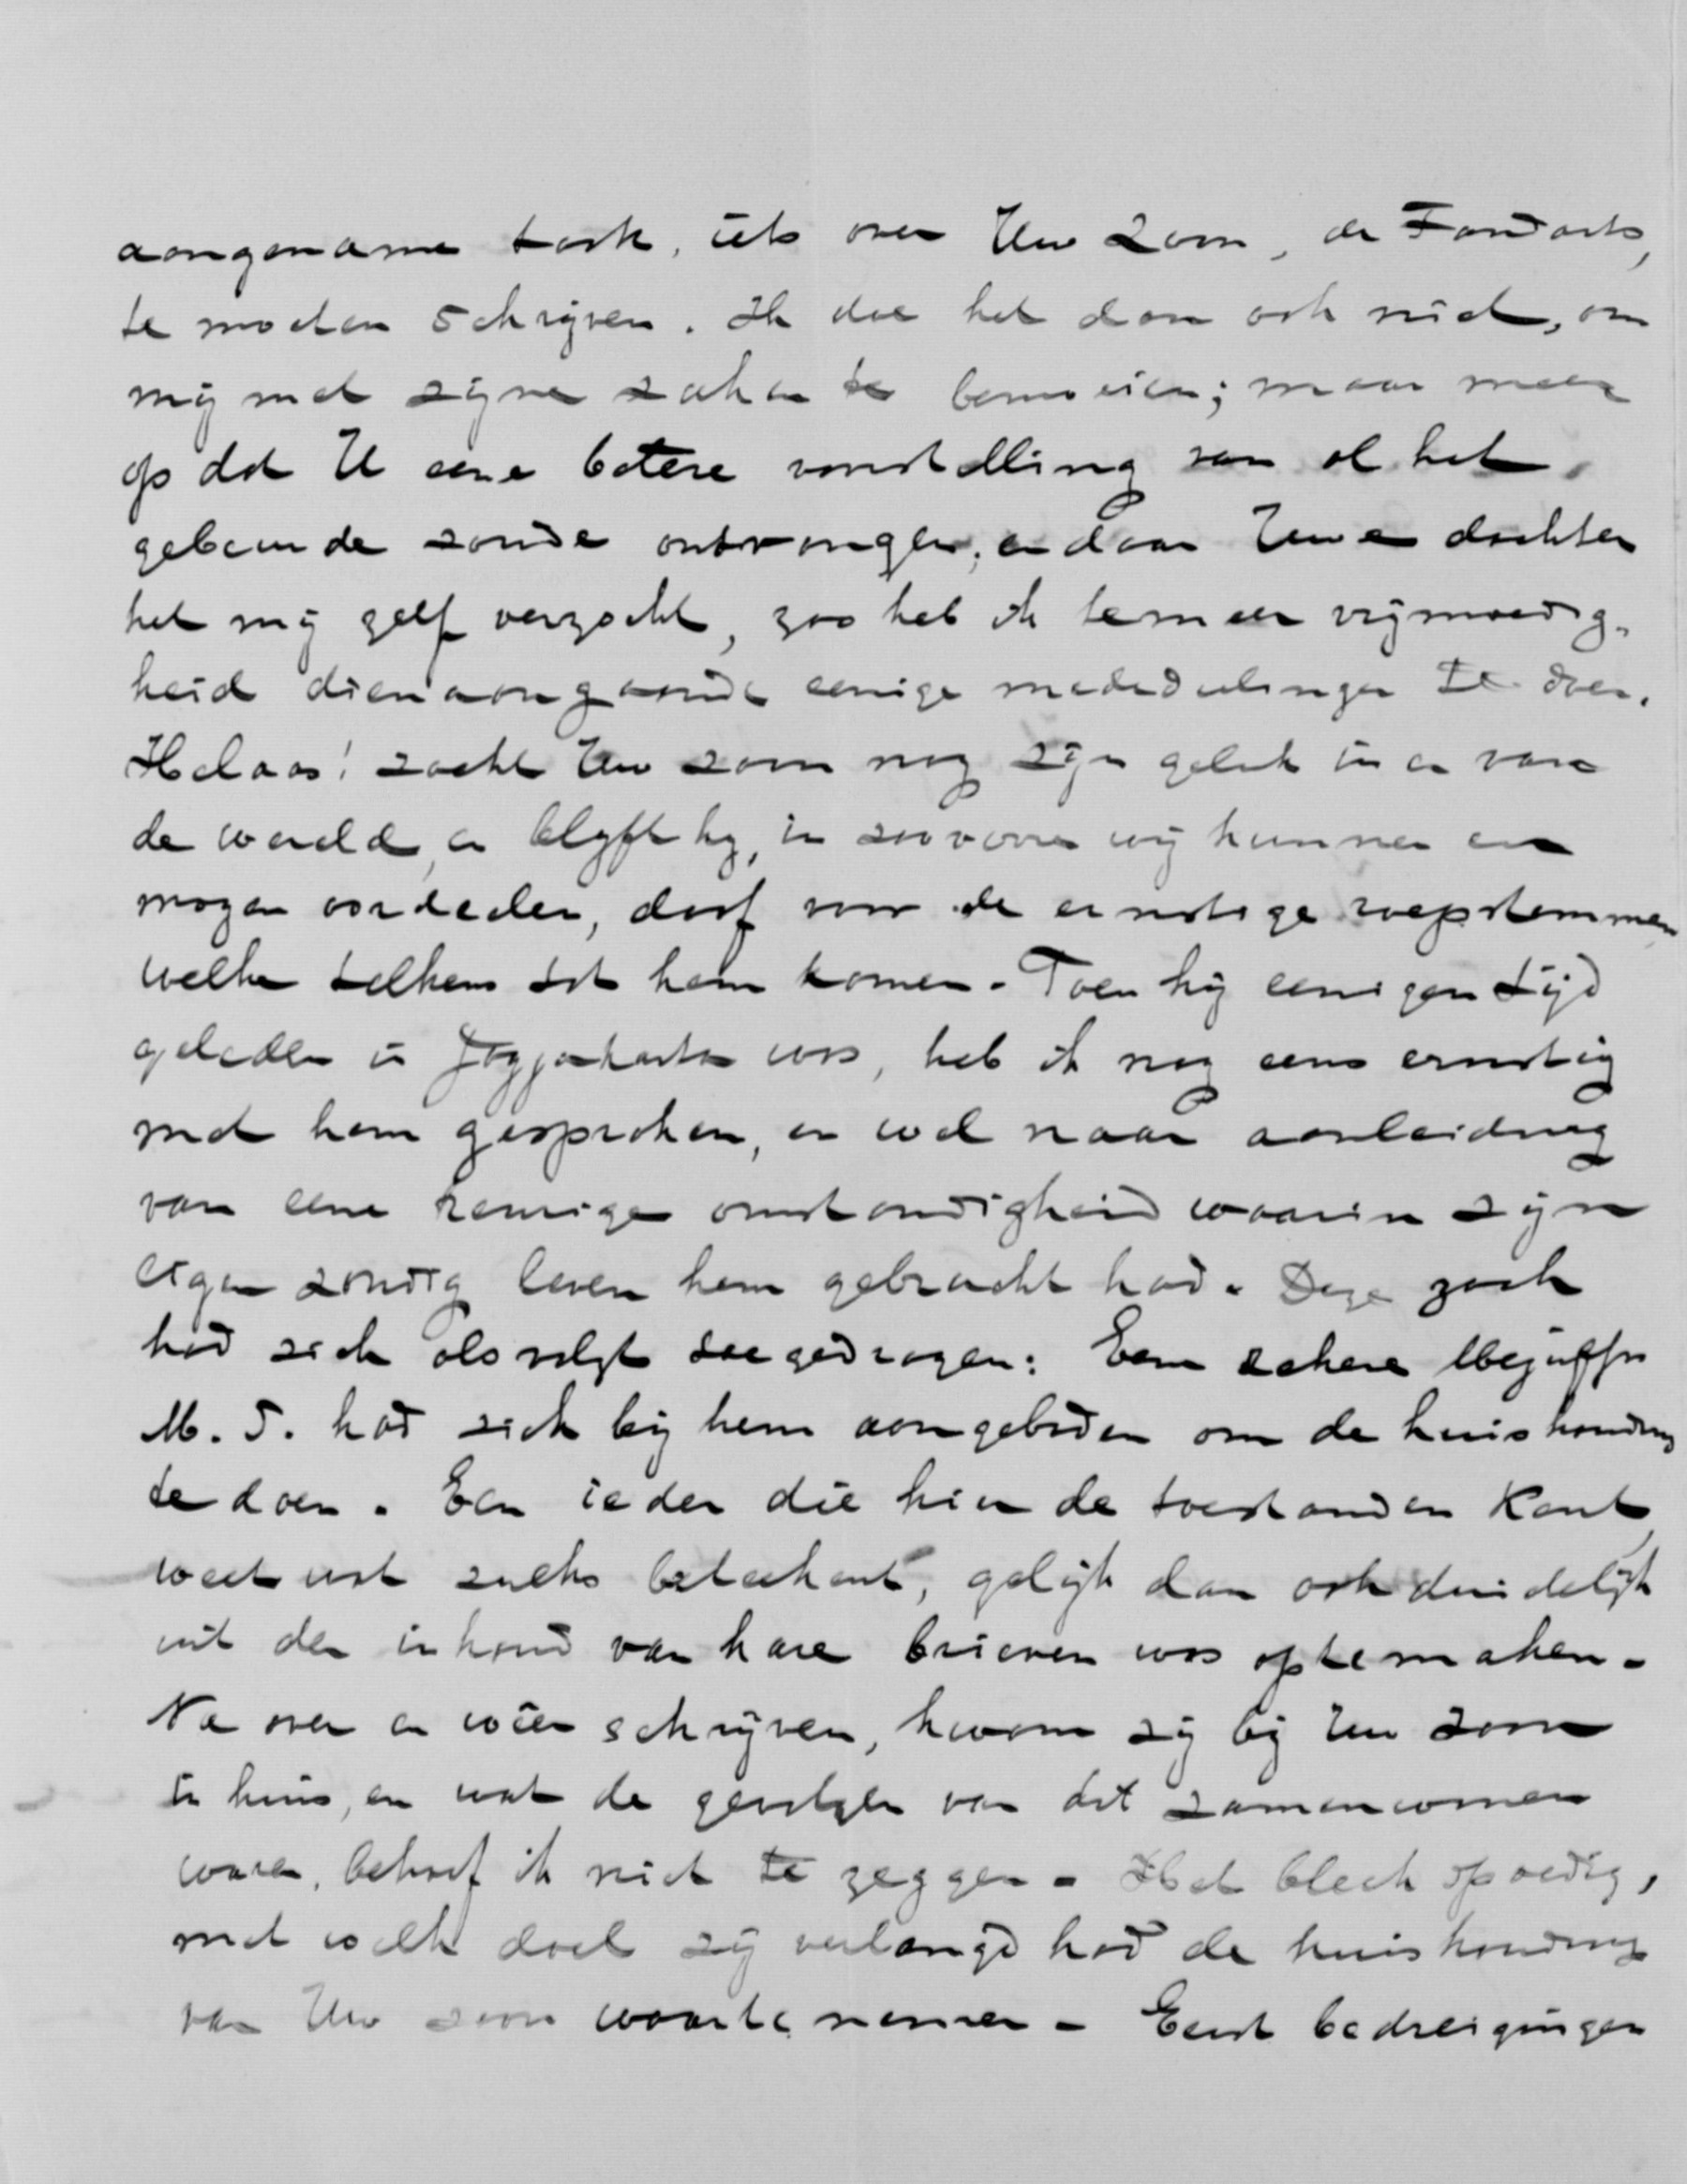 aangename taak, iets over Uw Zoon, de Tandarts,
te moeten schrijven. Ik doe het dan ook niet, om
mij met zijne zaken te bemoeien; maar meer
op dat U eene betere voorstelling van al het
gebeurde zoude ontvangen, en daar Uwe dochter
het mij zelf verzocht, zoo heb ik temeer vrijmoedig-
heid dienaangaande eenige mededeelingen te doen.
Helaas! zoekt Uw zoon nog zijn geluk in en van
de wereld, en blijft hij, in zooverre wij kunnen en
mogen oordeelen, doof voor de ernstige roepstemmen
welke telkens tot hem komen. Toen hij eenigen tijd
geleden in Jogjakarta was, heb ik nog eens ernstig
met hem gesproken, en wel naar aanleiding
van eene treurige omstandigheid waarin zijn
eigen zondig leven hem gebracht had. Deze zaak
had zich als volgt toegedragen: Eene zekere Mejuffr
M. S. had zich bij hem aangeboden om de huishouding
te doen. Een ieder die hier de toestanden kent,
weet wat zulks beteekent, gelijk dan ook duidelijk
uit den inhoud van hare brieven was optemaken.
Na over en weer schrijven, kwam zij bij Uw zoon
in huis, en wat de gevolgen van dit zamenwonen
waren, behoef ik niet te zeggen. Het bleek spoedig,
met welk doel zij verlangd had de huishouding
van Uw zoon waarte nemen. Eerst bedreigingen